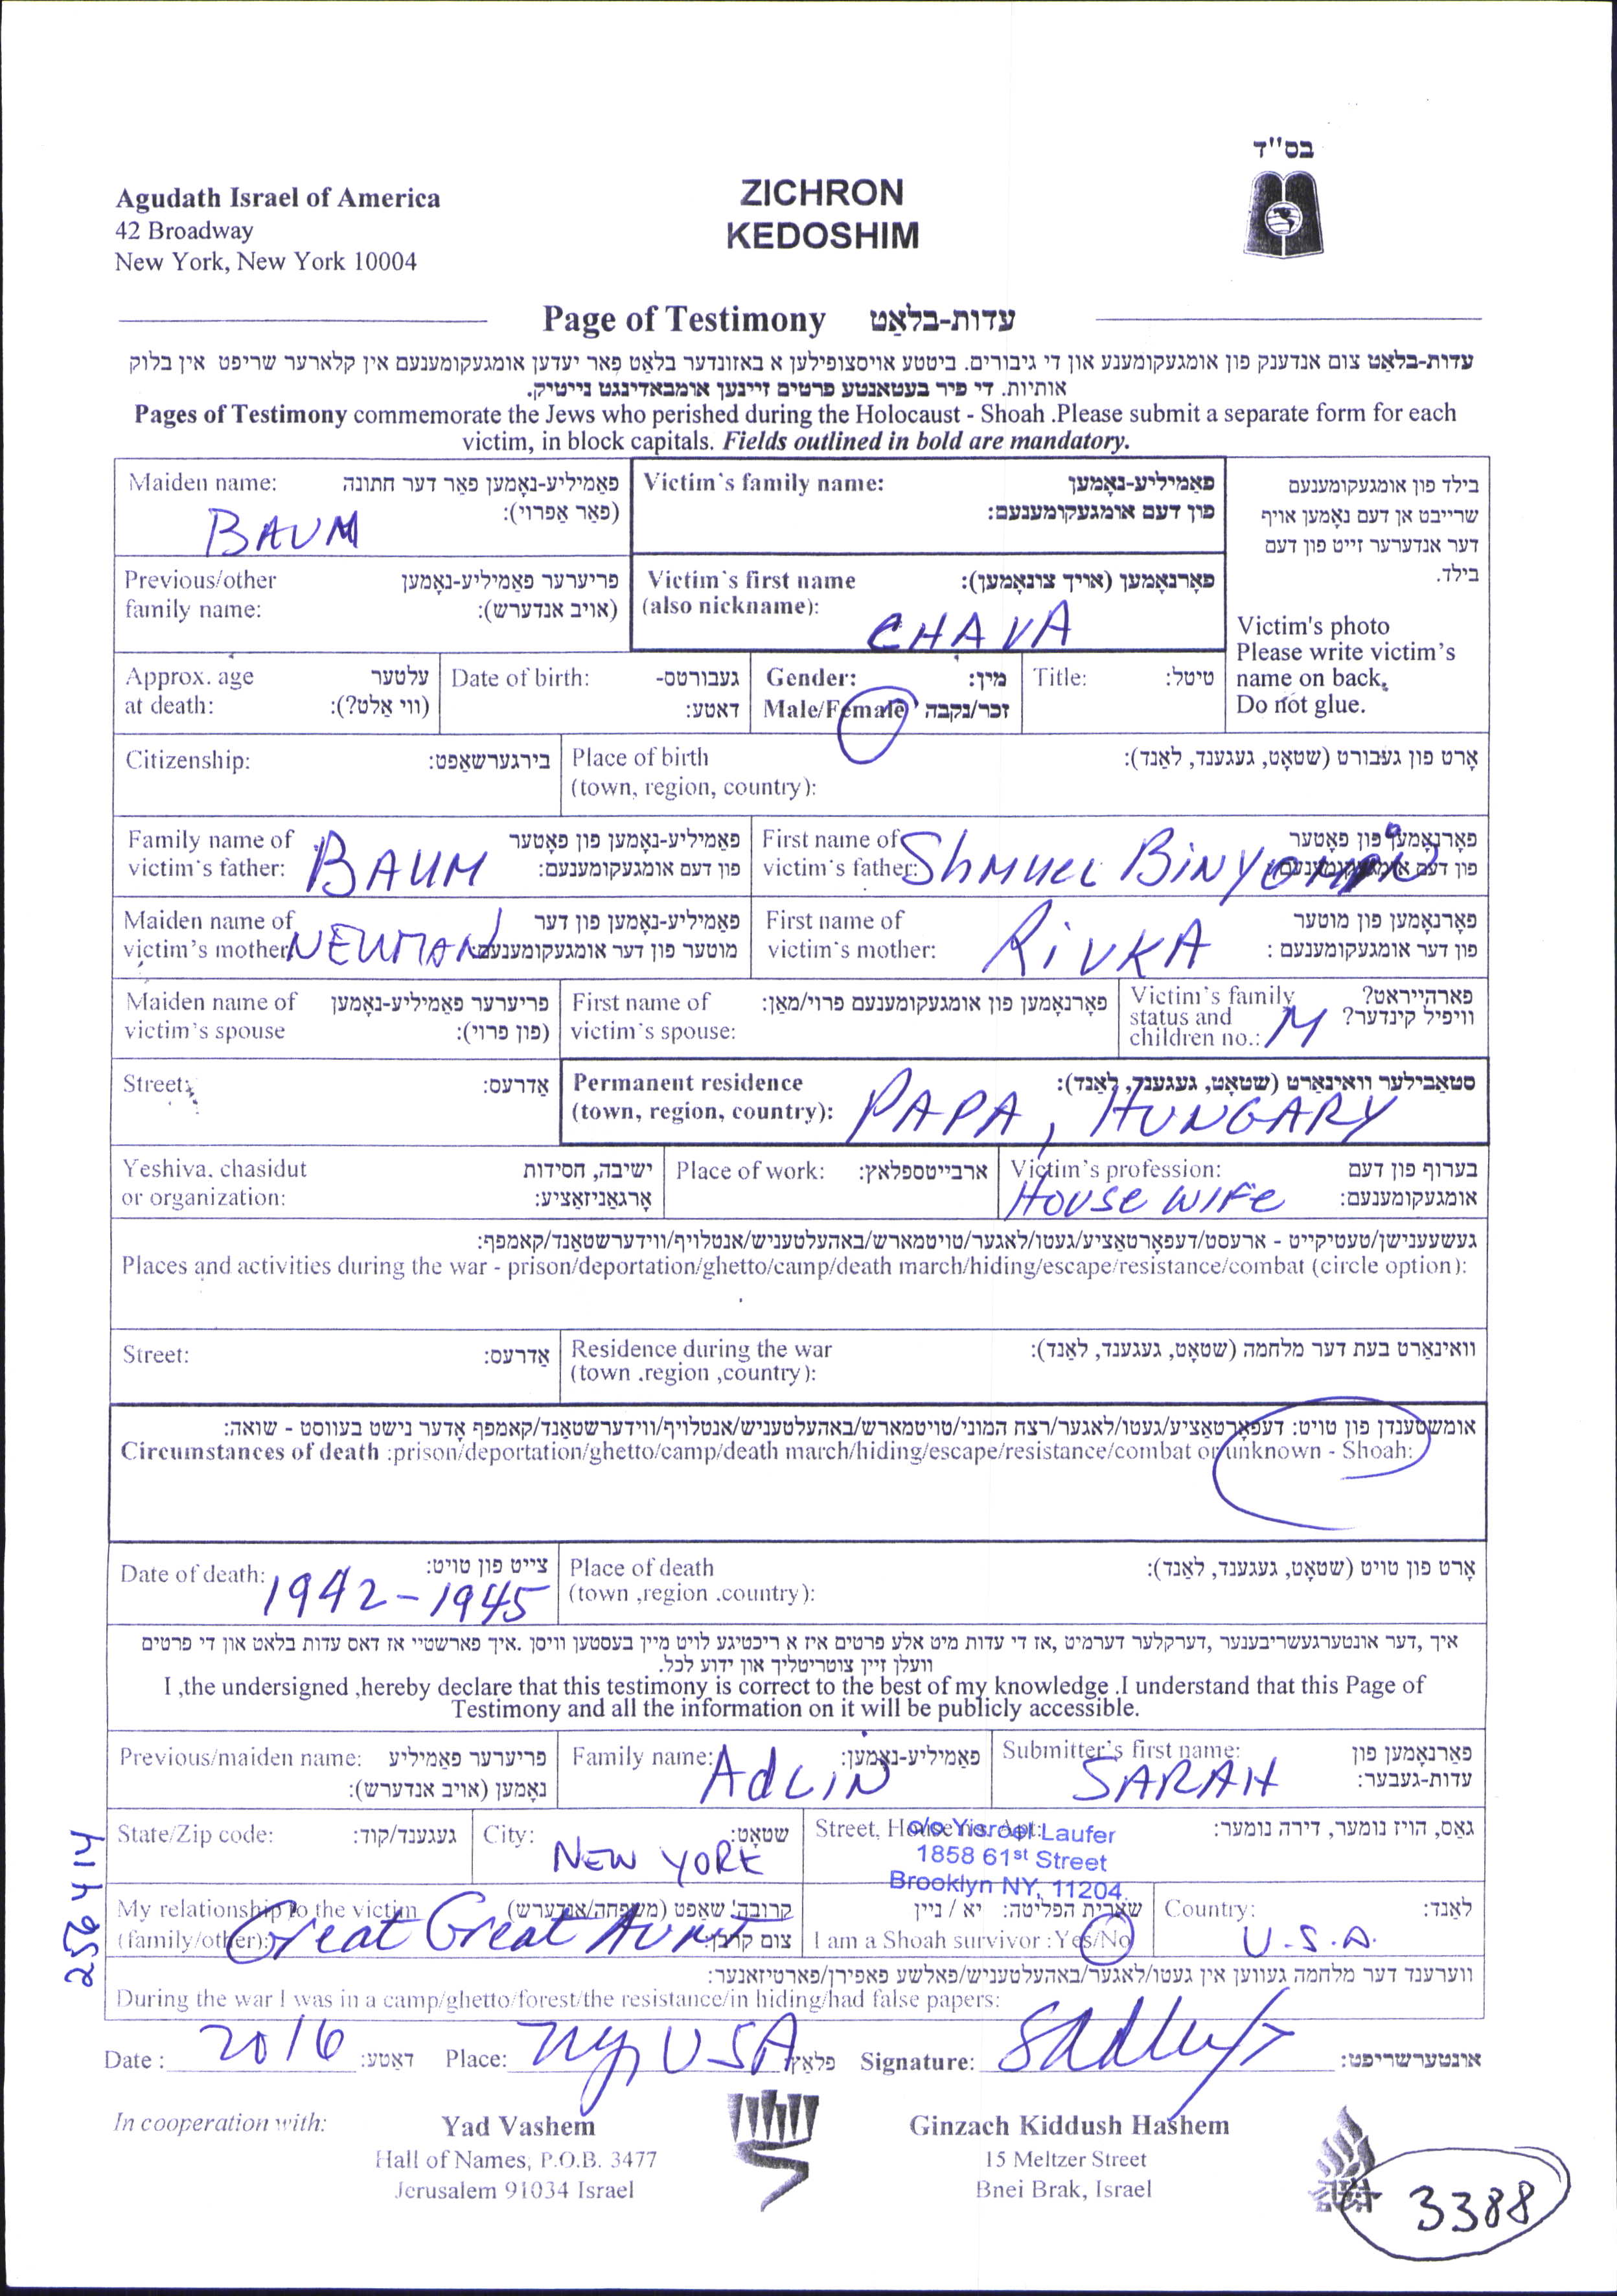 בס"ד
Agudath Israel of America
42 Broadway
New York, New York 10004
ZICHRON
KEDOSHIM
Page of Testimony עדות-בלאַט
עדות-בלאַט צום אנדענק פון אומגעקומענע און די גיבורים. ביטטע אויסצופילען א באזונדער בלאַט פאר יעדען אומגעקומענעם אין קלארער שריפט אין בלוק
אותיות. די פיר בעטאנטע פרטים זיינען אומבאדינגט נייטיק.
Pages of Testimony commemorate the Jews who perished during the Holocaust - Shoah .Please submit a separate form for each
victim, in block capitals. Fields outlined in bold are mandatory.
Maiden name: פאַמיליע-נאָמען פאר דער חתונה
(פאַר אַפרוי):
BAUM
Victim's family name: פאַמיליע-נאָמען
פון דעם אומגעקומענעם:
בילד פון אומגעקומענעם
שרייבט אן דעם נאָמען אויף
דער אנדערער זייט פון דעם
בילד.
Victim's photo
Please write victim's
name on back.
Do not glue.
Previous/other פריערער פאַמיליע-נאָמען
family name: (אויב אנדערש):
Victim's first name פאָרנאָמען (אויך צונאָמען):
(also nickname):
CHAVA
Approx. age עלטער
at death: (ווי אַלט?):
Date of birth: געבורטס-
דאטע:
Gender: מין:
Male/Female זכר/נקבה
Title: טיטל:
Citizenship: בירגערשאַפט:
Place of birth אָרט פון געבורט (שטאָט, געגענד, לאַנד):
(town, region, country):
Family name of פאַמיליע-נאָמען פון פאָטער
victim's father: פון דעם אומגעקומענעם:
BAUM
First name of פאָרנאָמען פון פאָטער
victim's father: פון דעם אומגעקומענעם:
Shmuel Binyomin
Maiden name of פאַמיליע-נאָמען פון דער
victim's mother מוטער פון דער אומגעקומענעם:
NEWMAN
First name of פאָרנאָמען פון מוטער
victim's mother: פון דער אומגעקומענעם :
RIVKA
Maiden name of פריערער פאַמיליע-נאָמען
victim's spouse (פון פרוי):
First name of פאָרנאָמען פון אומגעקומענעם פרוי/מאַן:
victim's spouse:
Victim's family פארהייראט?
status and וויפיל קינדער?
children no.: M
Street: אַדרעס:
Permanent residence סטאַבילער וואינאָרט (שטאָט, געגענד, לאַנד):
(town, region, country): PAPA, HUNGARY
Yeshiva, chasidut ישיבה, חסידות
or organization: אָרגאַניזאַציע:
Place of work: ארבייטספלאץ:
Victim's profession: בערוף פון דעם
אומגעקומענעם:
HOUSE WIFE
געשעענישן/טעטיקייט - ארעסט/דעפאָרטאַציע/געטו/לאגער/טויטמארש/באהעלטעניש/אנטלויף/ווידערשטאַנד/קאמפף:
Places and activities during the war - prison/deportation/ghetto/camp/death march/hiding/escape/resistance/combat (circle option):
Street: אַדרעס:
Residence during the war וואינאָרט בעת דער מלחמה (שטאָט, געגענד, לאַנד):
(town ,region ,country):
אומשטענדן פון טויט: דעפאָרטאַציע/געטו/לאגער/רצח המוני/טויטמארש/באהעלטעניש/אנטלויף/ווידערשטאַנד/קאמפף אָדער נישט בעווסט - שואה:
Circumstances of death :prison/deportation/ghetto/camp/death march/hiding/escape/resistance/combat or unknown - Shoah:
Date of death: צייט פון טויט:
1942-1945
Place of death אָרט פון טויט (שטאָט, געגענד, לאַנד):
(town ,region ,country):
איך ,דער אונטערגעשריבענער ,דערקלער דערמיט ,אז די עדות מיט אלע פרטים איז א ריכטיגע לויט מיין בעסטען וויסן .איך פארשטיי אז דאס עדות בלאט און די פרטים
וועלן זיין צוטריטליך און ידוע לכל.
I ,the undersigned ,hereby declare that this testimony is correct to the best of my knowledge .I understand that this Page of
Testimony and all the information on it will be publicly accessible.
Previous/maiden name: פריערער פאַמיליע
נאָמען (אויב אנדערש):
Family name: פאַמיליע-נאָמען:
Adlin
Submitter's first name: פאַרנאָמען פון
עדות-געבער:
SARAH
State/Zip code: געגענד/קוד:
City: שטאָט:
NEW YORK
Street, House no. Apt: גאַס, הויז נומער, דירה נומער:
c/o Yisroel Laufer
1858 61st Street
Brooklyn NY, 11204
My relationship to the victim קרובה' שאפט (משפחה/אנדערש)
(family/other): צום קרבן:
Great Great Aunt
שארית הפליטה: יא / ניין
I am a Shoah survivor :Yes/No
Country: לאַנד:
U.S.A.
ווערענד דער מלחמה געווען אין געטו/לאגער/באהעלטעניש/פאלשע פאפירן/פארטיזאנער:
During the war I was in a camp/ghetto/forest/the resistance/in hiding/had false papers:
Date : 2016 דאַטע: Place: NY, USA פלאַץ Signature: אונטערשריפט:
In cooperation with:
Yad Vashem
Hall of Names, P.O.B. 3477
Jerusalem 91034 Israel
Ginzach Kiddush Hashem
15 Meltzer Street
Bnei Brak, Israel
3388
256414